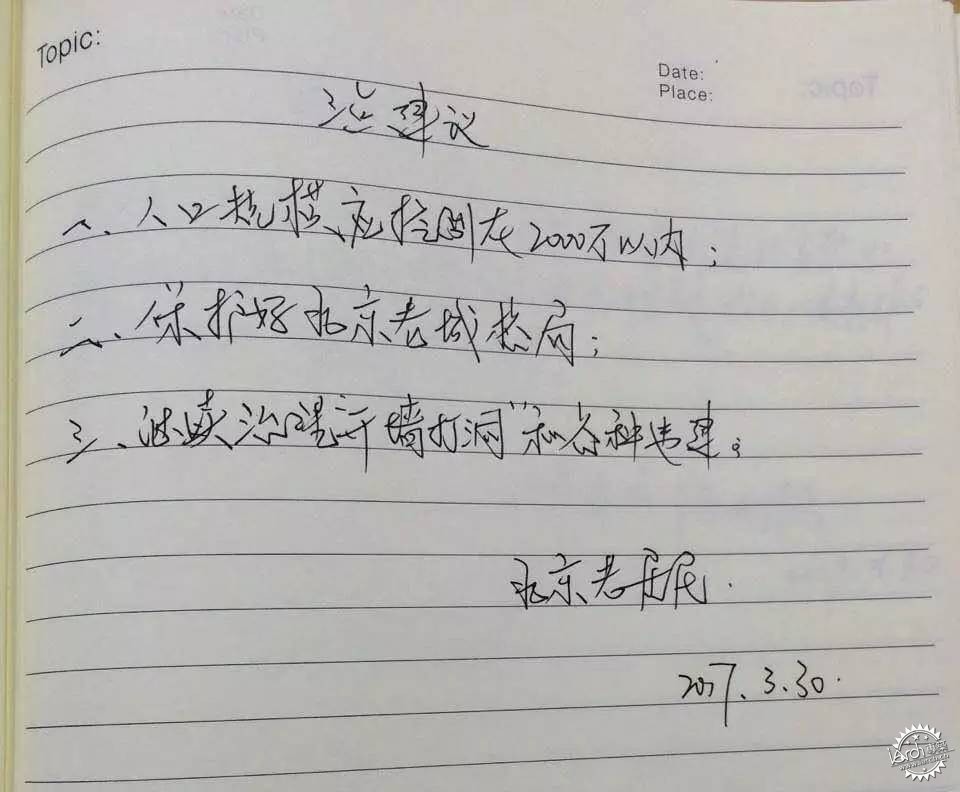 Topic:
Date:
Place:
建议
一、人口规模应控制在2000万以内;
二、保护好北京老城格局;
三、治理"开墙打洞"和各种违建。
北京老居民.
2017.3.30.